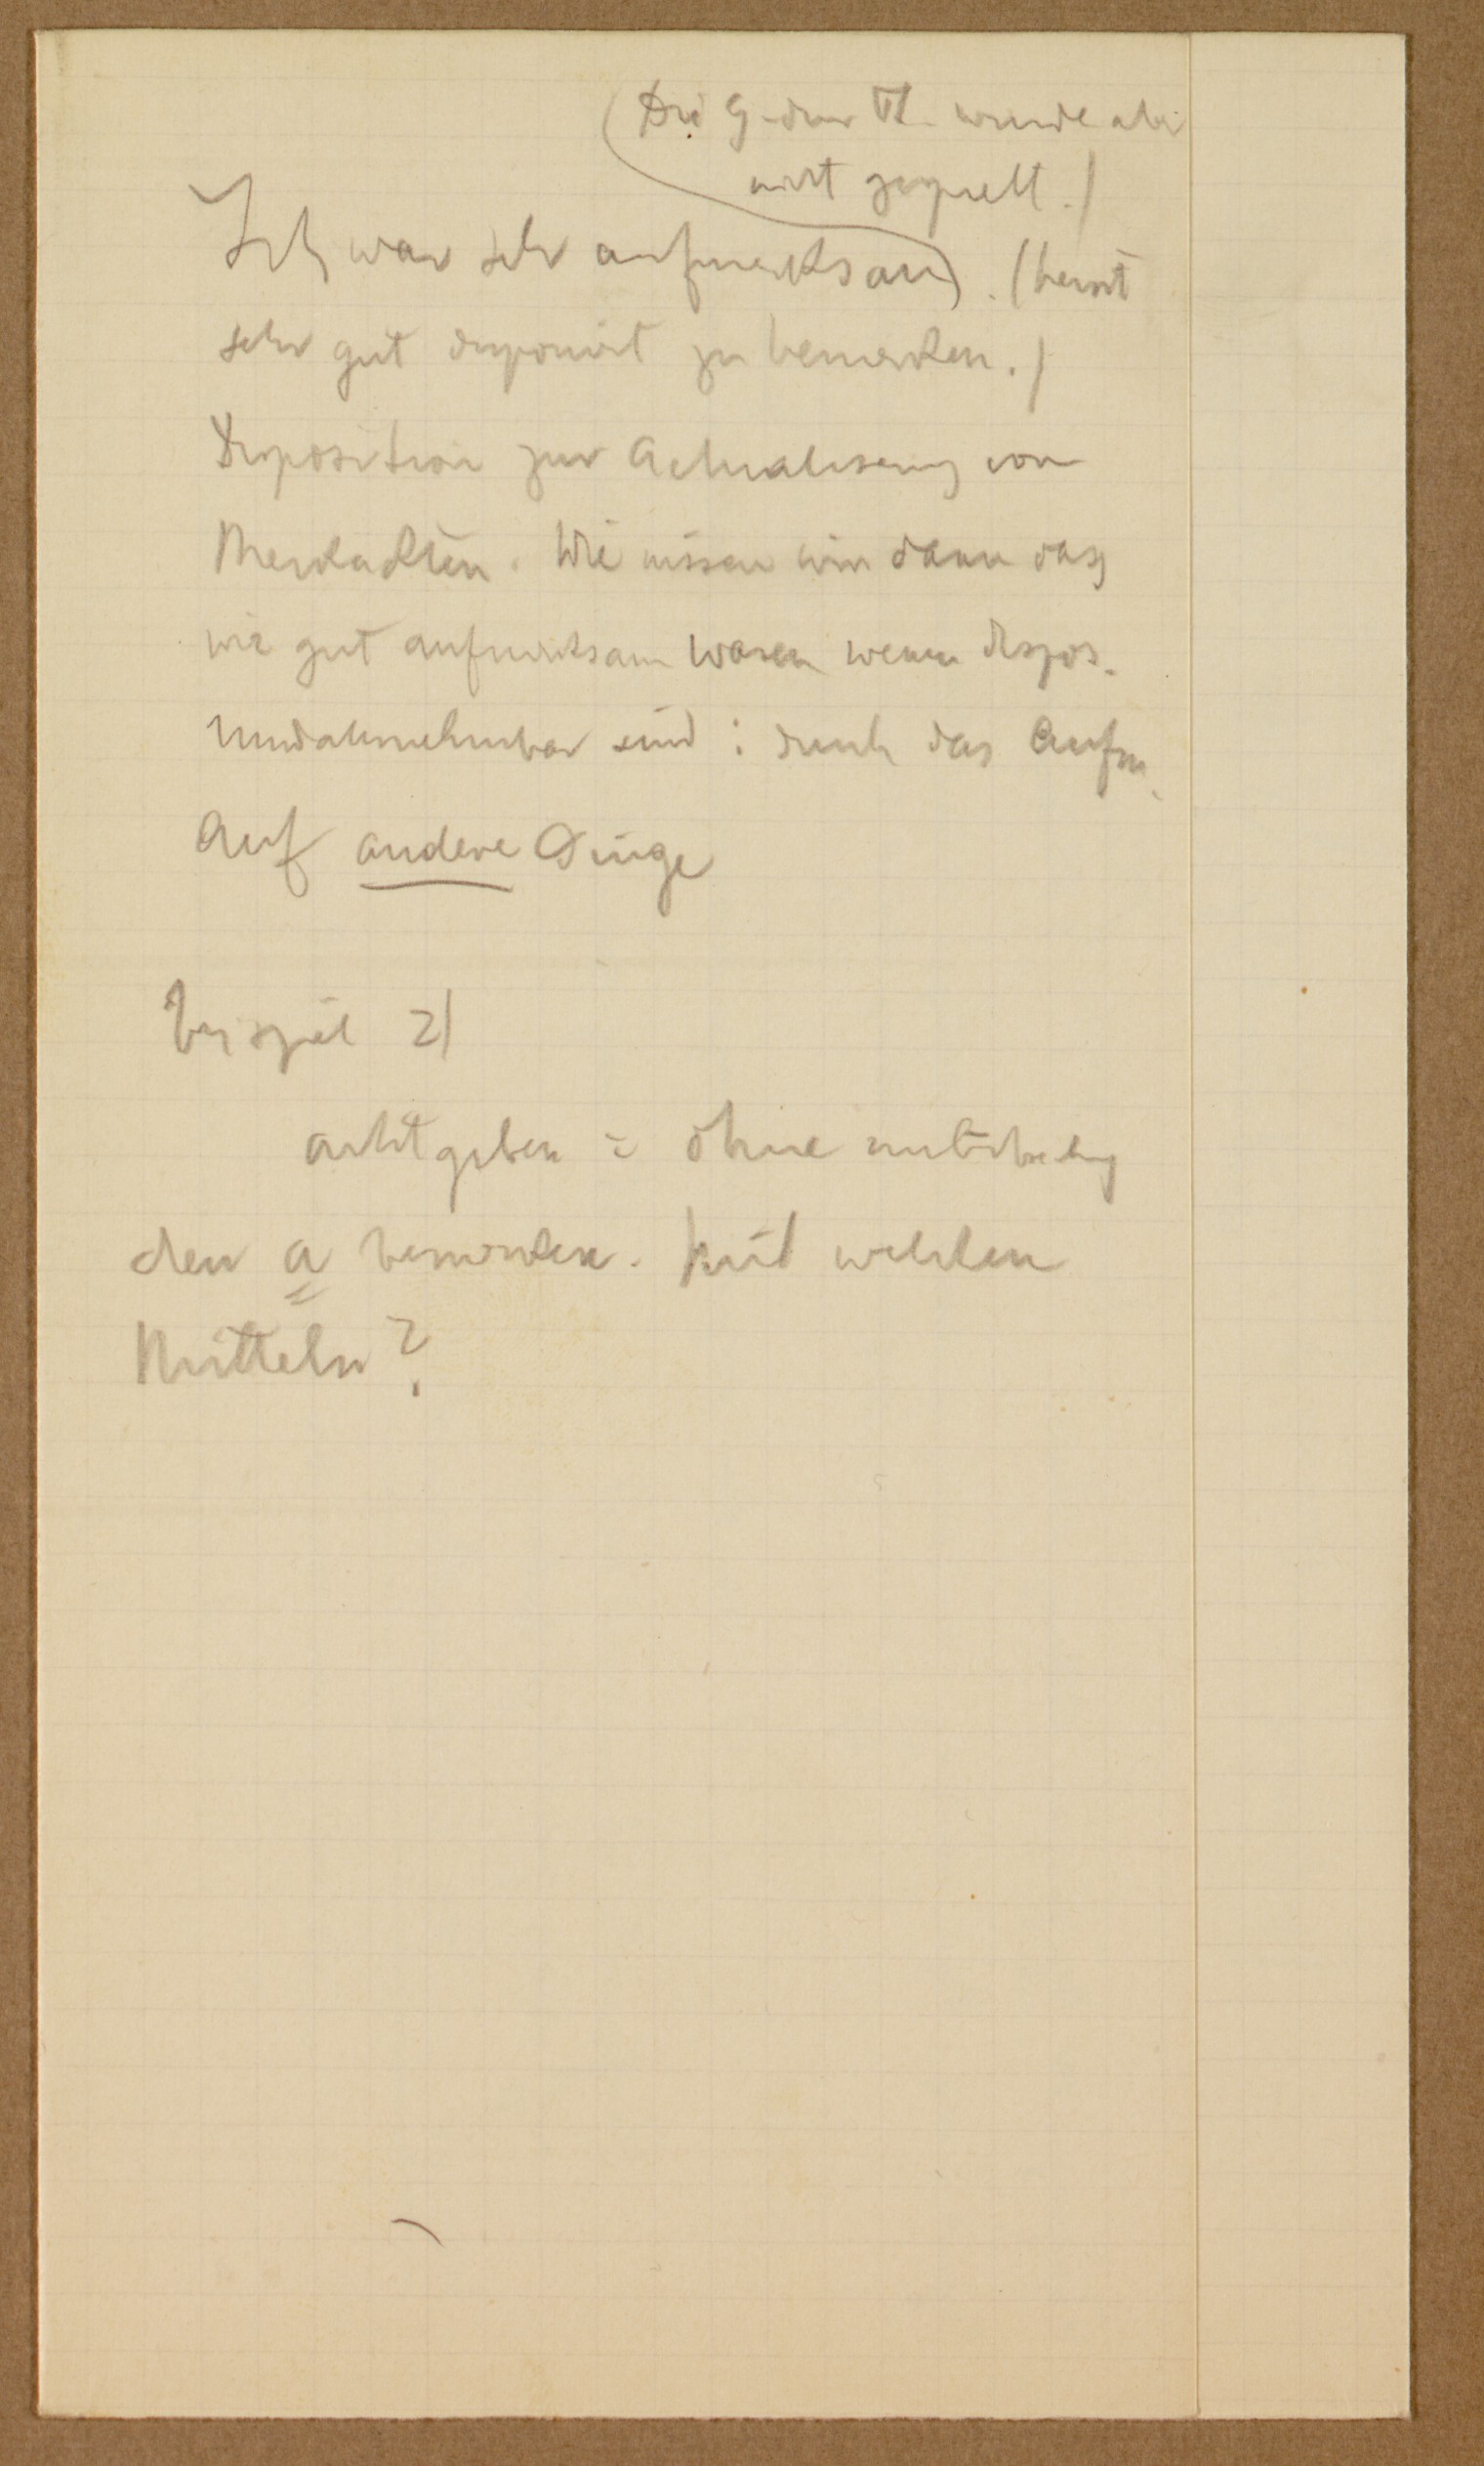 (Die G-dur St. wurde aber
nicht gespielt.)
Ich war sehr aufmerksam. (heisst
sehr gut disponirt zu bemerken.)
Disposition zur Actualisierung von
Merkackten. Wie wissen wir dann dass
wir gut aufmerksam waren wenn dispos.
unwahrnehmbar sind: durch das Aufm.
Auf andere Dinge
Beispiel 2)
achtgeben = ohne
den a bemerken. Mit welchen
Mitteln?